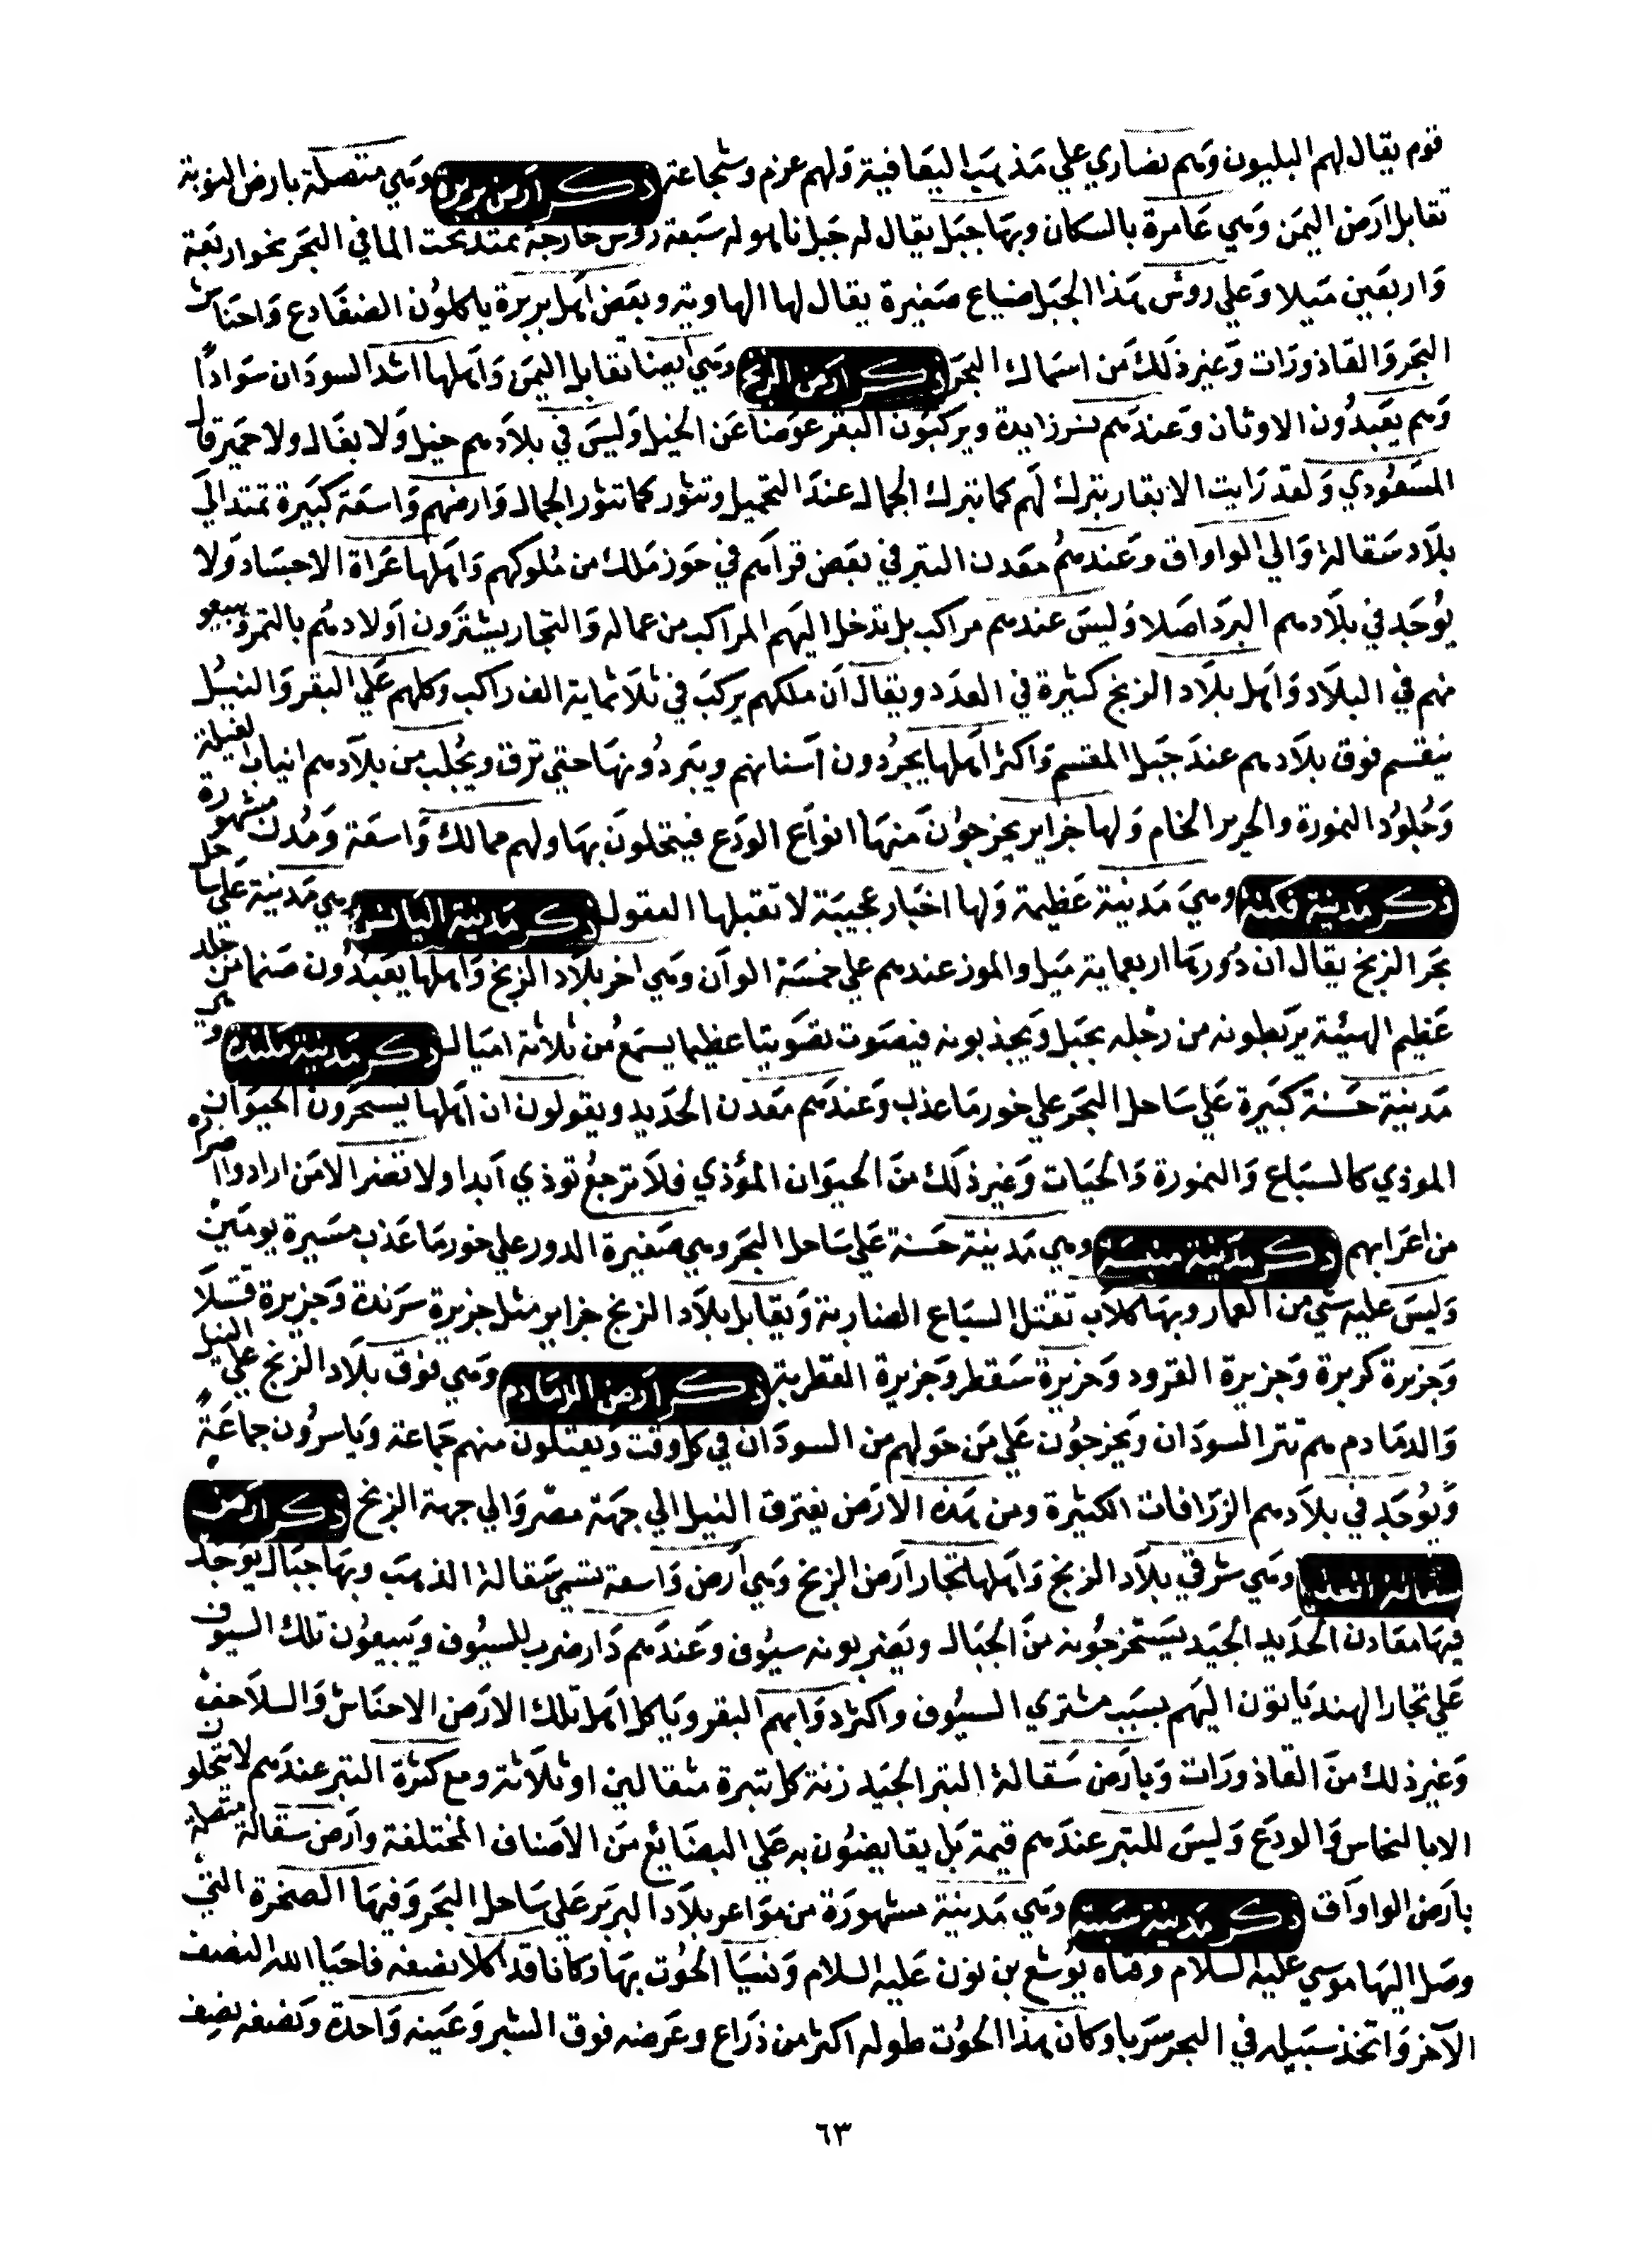 قوم يقال لهم البليون وهم نصاري علي مذهب اليعاقبة ولهم عزم وشجاعة ذكر ارض بربرة وهي متصلة بارض النوبة
تقابل ارض اليمن وهي عامرة بالسكان وبها جبل يقال له جبل نابهو له سبعة رؤس خارجة تمتد تحت الما في البحر نحو اربعة
واربعين ميلا وعلي روس هذا الجبل ضياع صغيرة يقال لها الهاوية وبعض اهل بربرة ياكلون الضفادع واحناش
البحر والقاذورات وغير ذلك من اسماك البحر ذكر ارض الزنج وهي ايضا تقابل اليمن واهلها اشد السودان سوادا
وهم يعبدون الاوثان وعندهم شر زايدة ويركبون البقر عوضا عن الخيل وليس في بلادهم خيل ولا بغال ولا حمير قال
المسعودي ولقد رايت الابقار تبرك لهم كما تبرك الجمال عند التحميل وتثور كما تثور الجمال وارضهم واسعة كبيرة تمتد الي
بلاد سقالة والي الواواق وعندهم معدن التبر في بعض قراهم في حوز ملك من ملوكهم واهلها عراة الاجساد ولا
يوجد في بلادهم البرد اصلا وليس عندهم مراكب بل تدخل اليهم المراكب من عماله والتجار يشترون اولادهم بالتمر ويبيعو
نهم في البلاد واهل بلاد الزنج كثيرة في العدد ويقال ان ملكهم يركب في ثلاثماية الف راكب وكلهم علي البقر والنيل
ينقسم فوق بلادهم عند جبل المقسم واكثر اهلها يجردون اسنانهم ويبردونها حتي ترق ويجلب من بلادهم انياب الفيلة
وجلود النمورة والحرير الخام ولها جزاير يخرجون منها انواع الودع فيتحلون بها ولهم ممالك واسعة ومدن مشهورة
ذكر مدينة نكبة وهي مدينة عظيمة ولها اخبار عجيبة لا تقبلها العقول ذكر مدينة اليانس وهي مدينة علي ساحل
بحر الزنج يقال ان دورها اربعماية ميل والموز عندهم علي خمسة الوان وهي اخر بلاد الزنج واهلها يعبدون صنما من جلد
عظيم الهيئة يربطونه من رجله بحبل ويجذبونه فيصوت تصويتا عظيما يسمع من ثلاثة اميال ذكر مدينة ملندة وهي
مدينة حسنة كبيرة علي ساحل البحر علي خور ما عذب وعندهم معدن الحديد ويقولون ان اهلها يسحرون الحيوان
الموذي كالسباع والنمورة والحيات وغير ذلك من الحيوان المؤذي فلا ترجع توذي ابدا ولا تضر الا من ارادوا اضراره
من اعرابهم ذكر مدينة منبسة وهي مدينة حسنة علي ساحل البحر وهي صغيرة الدور علي خور ما عذب مسيرة يومين
وليس عليه شي من العمار وبها كلاب تقتل السباع الضارية ويقابل بلاد الزنج جزاير مثل جزيرة سرندة وجزيرة قتبلا
وجزيرة كربرة وجزيرة القرود وجزيرة سقطر وجزيرة القطربة ذكر ارض الدمادم وهي فوق بلاد الزنج علي النيل
والدمادم هم تتر السودان ويخرجون علي من حولهم من السودان في كل وقت ويقتلون منهم جماعة وياسرون جماعة
ويوجد في بلادهم الزرافات الكثيرة ومن هذه الارض يفترق النيل الي جهة مصر والي جهة الزنج ذكر ارض
سقالة وهي شرقي بلاد الزنج واهلها تجار ارض الزنج وهي ارض واسعة تسمي سقالة الذهب وبها جبال يوجد
فيها معادن الحديد الجيد يستخرجونه من الجبال ويضربونه سيوف وعندهم دار ضرب للسيوف ويبيعون تلك السيوف
علي تجار الهند ياتون اليهم بسبب مشتري السيوف واكثر دوابهم البقر وياكل اهل تلك الارض الاحناش والسلاحف
وغير ذلك من القاذورات وبارض سقالة التبر الجيد زنة كل تبرة مثقالين او ثلاثة ومع كثرة التبر عندهم لا يتحلون
الا بالنحاس والودع وليس للتبر عندهم قيمة بل يقايضون به علي البضايع من الاصناف المختلفة وارض سقالة متصلة
بارض الواواق ذكر مدينة سبتة وهي مدينة مشهورة من مواعر بلاد البربر علي ساحل البحر وفيها الصخرة التي
وصل اليها موسي عليه السلام وفتاه يوشع بن نون عليه السلام ونسيا الحوت بها وكانا قد اكلا نصفه فاحيا الله النصف
الآخر واتخذ سبيله في البحر سربا وكان هذا الحوت طوله اكثر من ذراع وعرضه فوق الشبر وعينه واحدة ونصفه نصف
٦٣